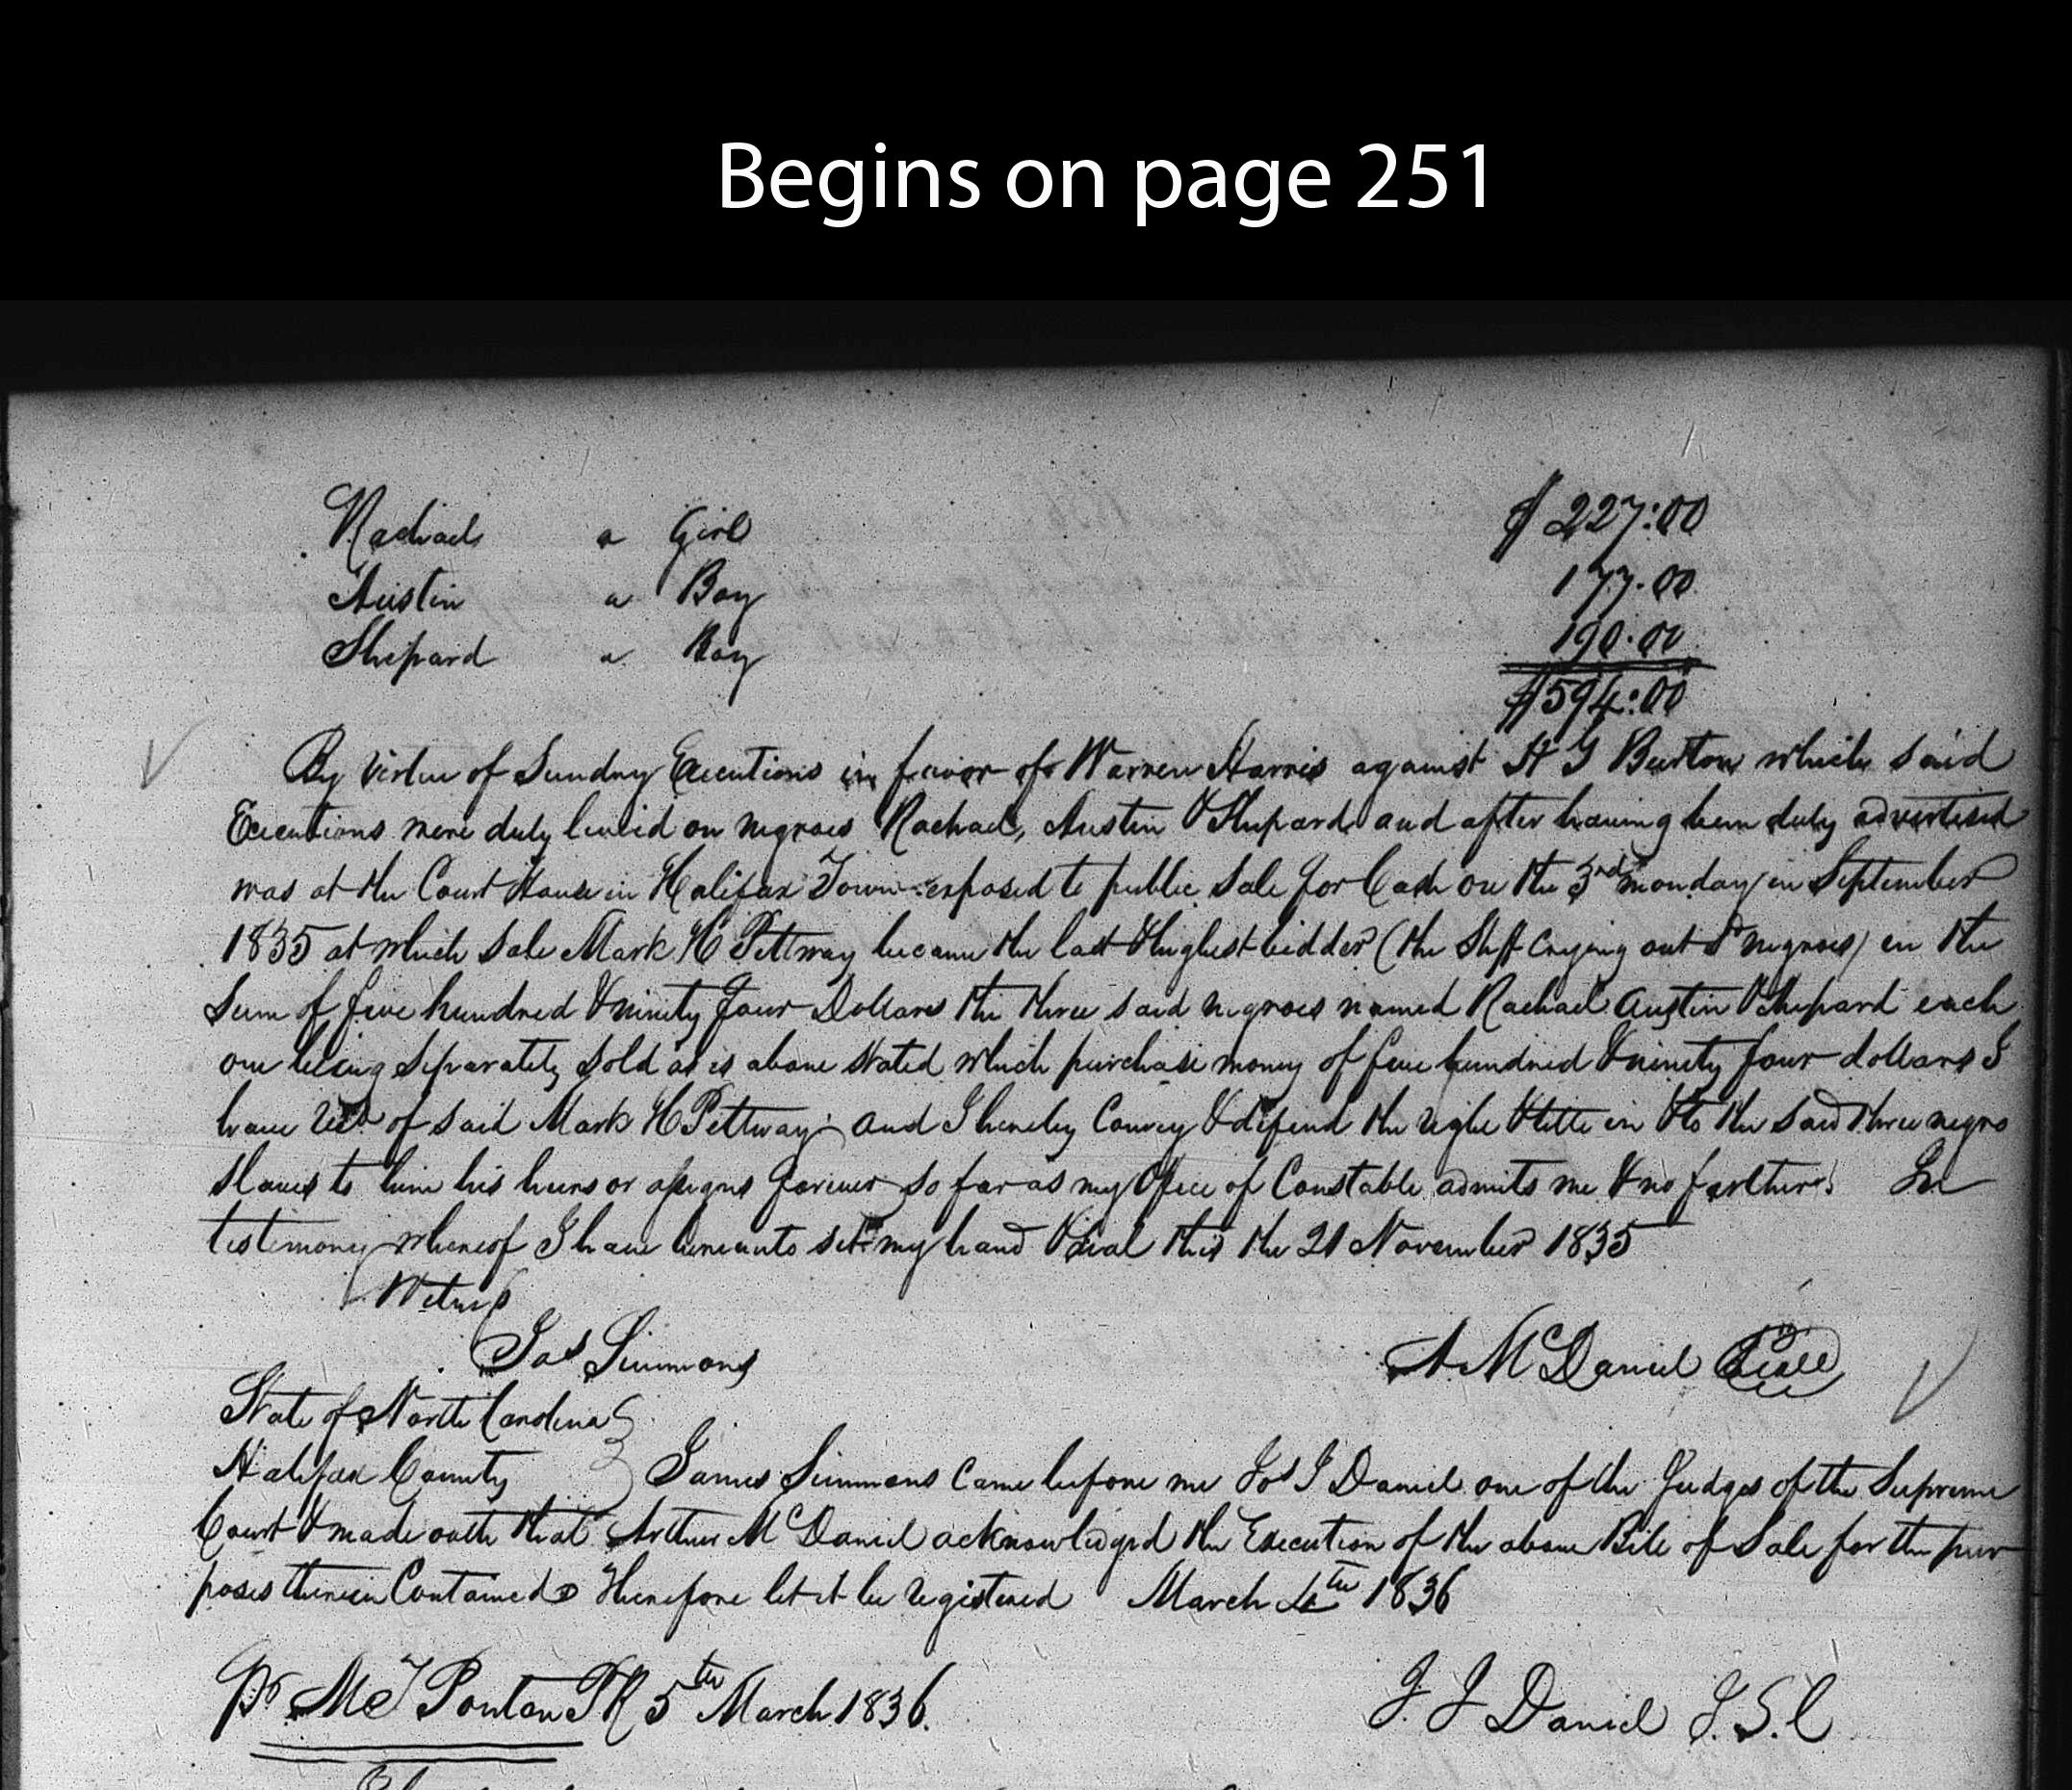 Begins on page 251
Rachael a Girl $227:00
Austin a Boy 177.00
Shepard a Boy 190.00
$594:00
By virtue of Sundry Executions in favor of Warren Harris against H G Burton which said
Executions were duly levied on negroes Rachael, Austin & Shepard and after having been duly advertised
was at the Court House in Halifax Town exposed to public Sale for Cash on the 3rd monday in September
1835 at which Sale Mark H Pettway became the last & highest bidder (the Shff Crying out sd negroes) in the
Sum of five hundred & ninety four Dollars the three said negroes named Rachael Austin & Shepard each
one being Separately Sold as is above Stated which purchase money of five hundred & ninety four dollars I
have recd of said Mark H Pettway and I hereby Convey & defend the right & title in & to the said three negro
slaves to him his heirs or assigns forever so far as my Office of Constable admits me & no farther In
testimony whereof I have hereunto set my hand & seal this the 21 November 1835
Witness
Jas Simmons A. McDaniel Seal
State of North Carolina
Halifax County James Simmons Came before me Jos J Daniel one of the Judges of the Supreme
Court & made oath that Arthur McDaniel acknowledged the Execution of the above Bill of Sale for the pur
poses therein Contained Therefore let it be registered March 4th 1836
Pr M T Ponton PR 5th March 1836. J. J Daniel J.S.C